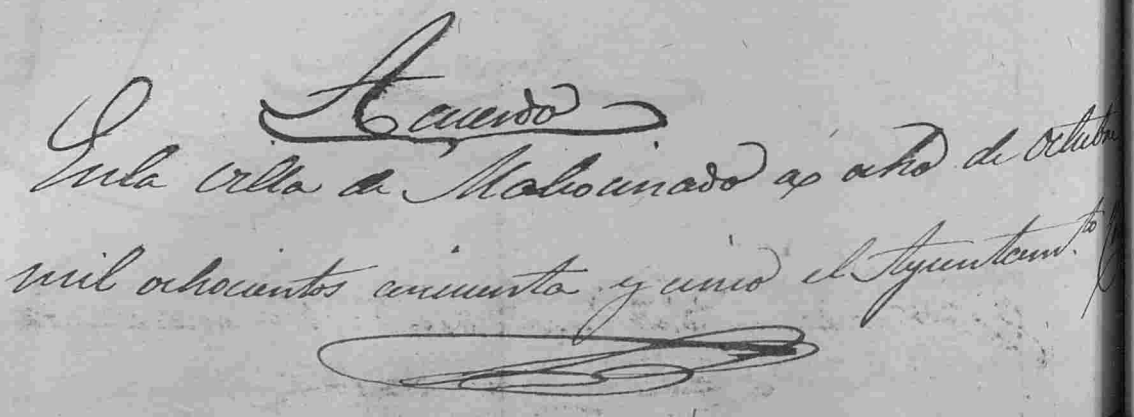 Acuerdo
En la villa de Malcocinado a ocho de Octubre
mil ochocientos cincuenta y cinco el Ayuntam.to